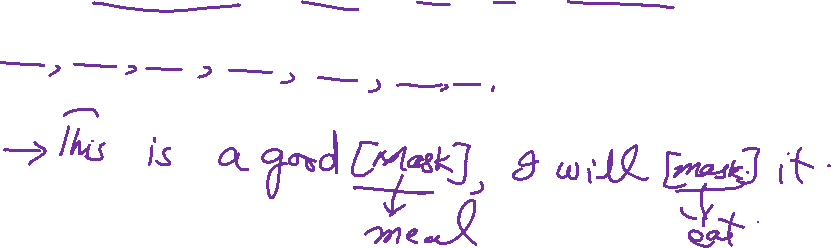 → This is a good [Mask], I will [mask] it.
meal eat